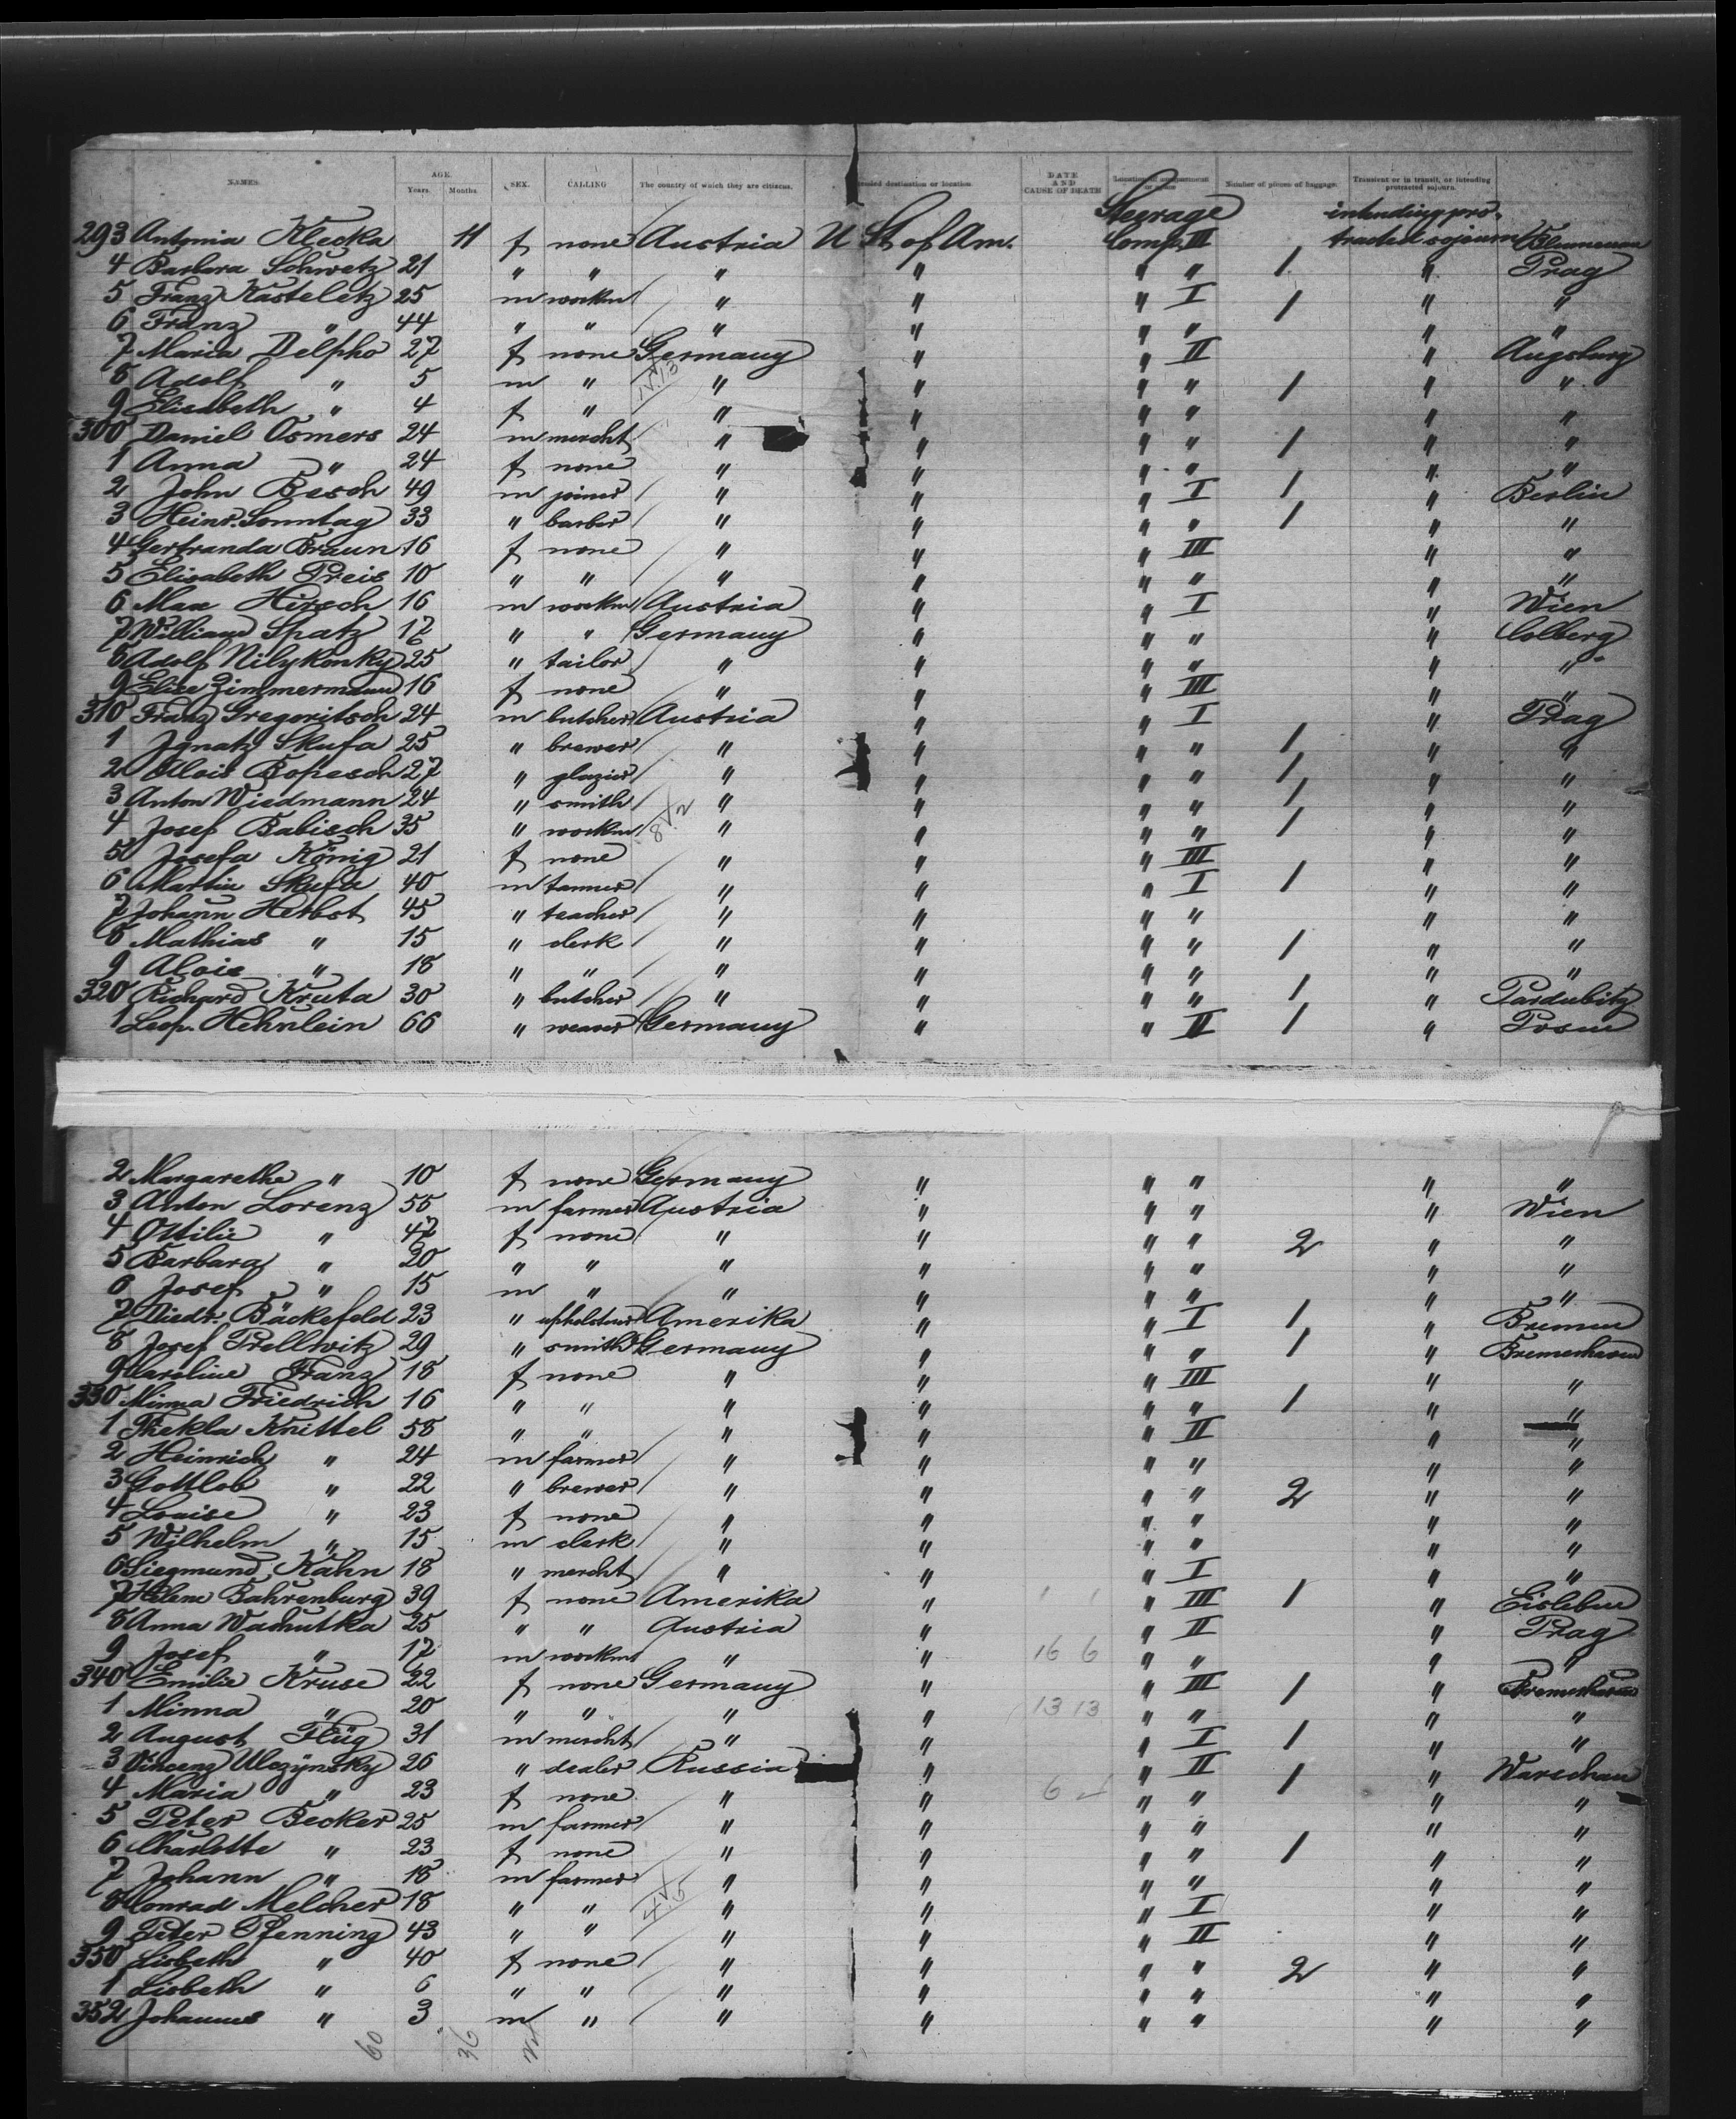 NAMES. AGE. Years. Months. SEX. CALLING The country of which they are citizens. destination or location DATE AND CAUSE OF DEATH Location of compartment or space Number of pieces of baggage. Transient or in transit, or intending protracted sojourn.
293 Antonia Klecka 11 f none Austria U St of Am. Steerage Comp. III intending protracted sojourn Blumenau
4 Barbara Schwetz 21 " " " " " " 1 " Prag
5 Franz Kasteletz 25 m workm " " " I 1 " "
6 Franz " 44 " " " " " " " "
7 Maria Delpho 27 f none Germany " " II " Augsburg
8 Adolf " 5 m " " " " " 1 " "
9 Elisabeth " 4 f " " " " " " "
300 Daniel Osmers 24 m mercht " " " " 1 " "
1 Anna " 24 f none " " " " " "
2 John Besch 49 m joiner " " " I 1 " Berlin
3 Heinr. Sonntag 33 " barber " " " " 1 " "
4 Gertranda Braun 16 f none " " " III " "
5 Elisabeth Preis 10 " " " " " " " "
6 Max Hirsch 16 m workm Austria " " I " Wien
7 William Spatz 17 " " Germany " " " " Colberg
8 Adolf Nilykonky 25 " tailor " " " " " "
9 Elise Zimmermann 16 f none " " " III " "
310 Franz Gregoritsch 24 m butcher Austria " " I " Prag
1 Ignatz Skufa 25 " brewer " " " " 1 " "
2 Alois Bopesch 27 " glazier " " " " 1 " "
3 Anton Wiedmann 24 " smith " " " " 1 " "
4 Josef Babisch 35 " workm " " " " 1 " "
5 Josefa König 21 f none " " " III " "
6 Martin Skufa 40 m tanner " " " I 1 " "
7 Johann Herbst 45 " teacher " " " " " "
8 Mathias " 15 " clerk " " " " 1 " "
9 Alois " 18 " " " " " " " "
320 Richard Kruta 30 " butcher " " " " 1 " Pardubitz
1 Leop. Hehnlein 66 " weaver Germany " " II 1 " Posen
2 Margarethe " 10 f none Germany " " " " "
3 Anton Lorenz 55 m farmer Austria " " " " Wien
4 Ottilie " 47 f none " " " " 2 " "
5 Barbara " 20 " " " " " " " "
6 Josef " 15 m " " " " " " "
7 Diedr. Bäckefeld 23 " upholsterer Amerika " " I 1 " Bremen
8 Josef Prellwitz 29 " smith Germany " " " 1 " Bremerhaven
9 Caroline Franz 18 f none " " " III " "
330 Minna Friedrich 16 " " " " " " 1 " "
1 Thekla Knittel 58 " " " " " II " "
2 Heinrich " 24 m farmer " " " " " "
3 Gottlob " 22 " brewer " " " " 2 " "
4 Louise " 23 f none " " " " " "
5 Wilhelm " 15 m clerk " " " " " "
6 Siegmund Kahn 18 " mercht " " " I " "
7 Helene Bahrenburg 39 f none Amerika " " III 1 " Eisleben
8 Anna Wachutka 25 " " Austria " " II " Prag
9 Josef " 17 m workm " " 16 6 " " " "
340 Emilie Kruse 22 f none Germany " " III 1 " Bremerhaven
1 Minna " 20 " " " " 13 13 " " " "
2 August Flüg 31 m mercht " " " I 1 " "
3 Vincenz Ulezynsky 26 " dealer Russia " " II " Warschau
4 Maria " 23 f none " " 6 " " 1 " "
5 Peter Becker 25 m farmer " " " " " "
6 Charlotte " 23 f none " " " " 1 " "
7 Johann " 18 m farmer " " " " " "
8 Conrad Melcher 18 " " " " " I " "
9 Peter Pfenning 43 " " " " " II " "
350 Lisbeth " 40 f none " " " " 2 " "
1 Lisbeth " 6 " " " " " " " "
352 Johannes " 3 m " " " " " " "
60 36